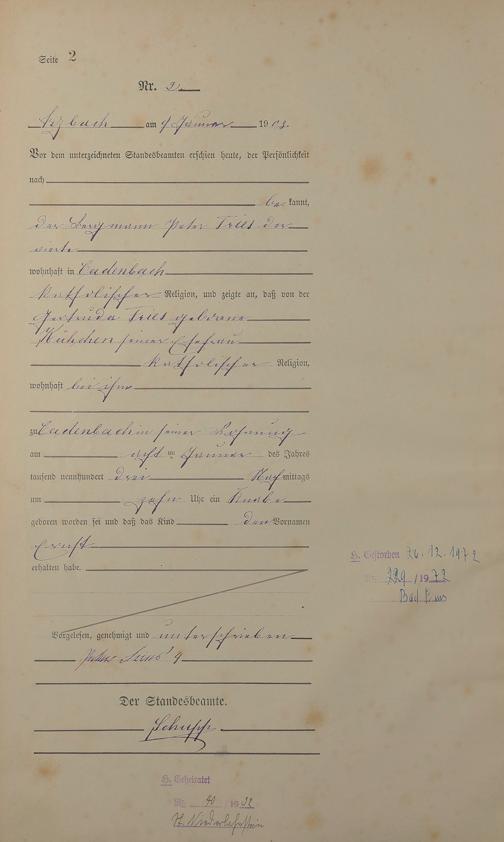 Seite 2
Nr. 2.
Arzbach am 9 Januar 1903.
Vor dem unterzeichneten Standesbeamten erschien heute, der Persönlichkeit
nach
be kannt,
der Bergmann Peter Fries der
vierte
wohnhaft in Cadenbach
katholischer Religion, und zeigte an, daß von der
Gertruda Fries geborene
seiner Ehefrau
katholischer Religion,
wohnhaft bei ihm
zu Cadenbach in seiner Wohnung
am acht ten Januar des Jahres
tausend neunhundert drei Nachmittags
um zehn Uhr ein Knabe
geboren worden sei und daß das Kind den Vornamen
Ernst
erhalten habe.
H. Gestorben 26.12.1972
Nr. 229 / 1972
Bad Ems
Vorgelesen, genehmigt und unterschrieben
Peter
Der Standesbeamte.
Schupp
H. Geheiratet
Nr. 40 / 1932
Niederlahnstein